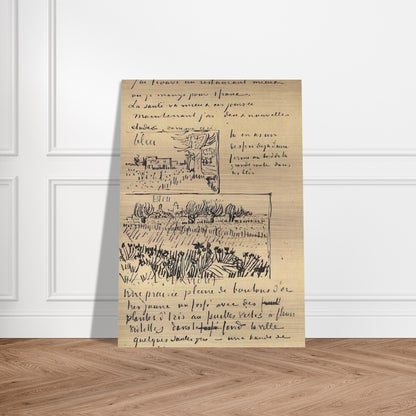 J'ai trouvé un restaurant mieux
où je mange pour 1 franc.
La santé va mieux ces jours ci
maintenant j'ai deux nouvelles
études comme ceci
bleu
tu en as un
dessin déjà d'une
ferme au bord de la
grande route dans
les blés.
bleu
Une prairie pleine de boutons d'or
très jaune un fossé avec des
plantes d'iris au feuilles vertes à fleurs
violettes dans le fond la ville
quelques saules gris – une bande de